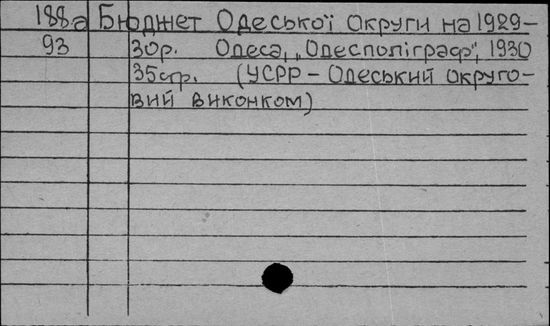 188а Бюджет Одеської округи на 1929-
93 30р. Одеса, „Одесполіграф", 1930
35стр. (УСРР - Одеський округо-
вий виконком)